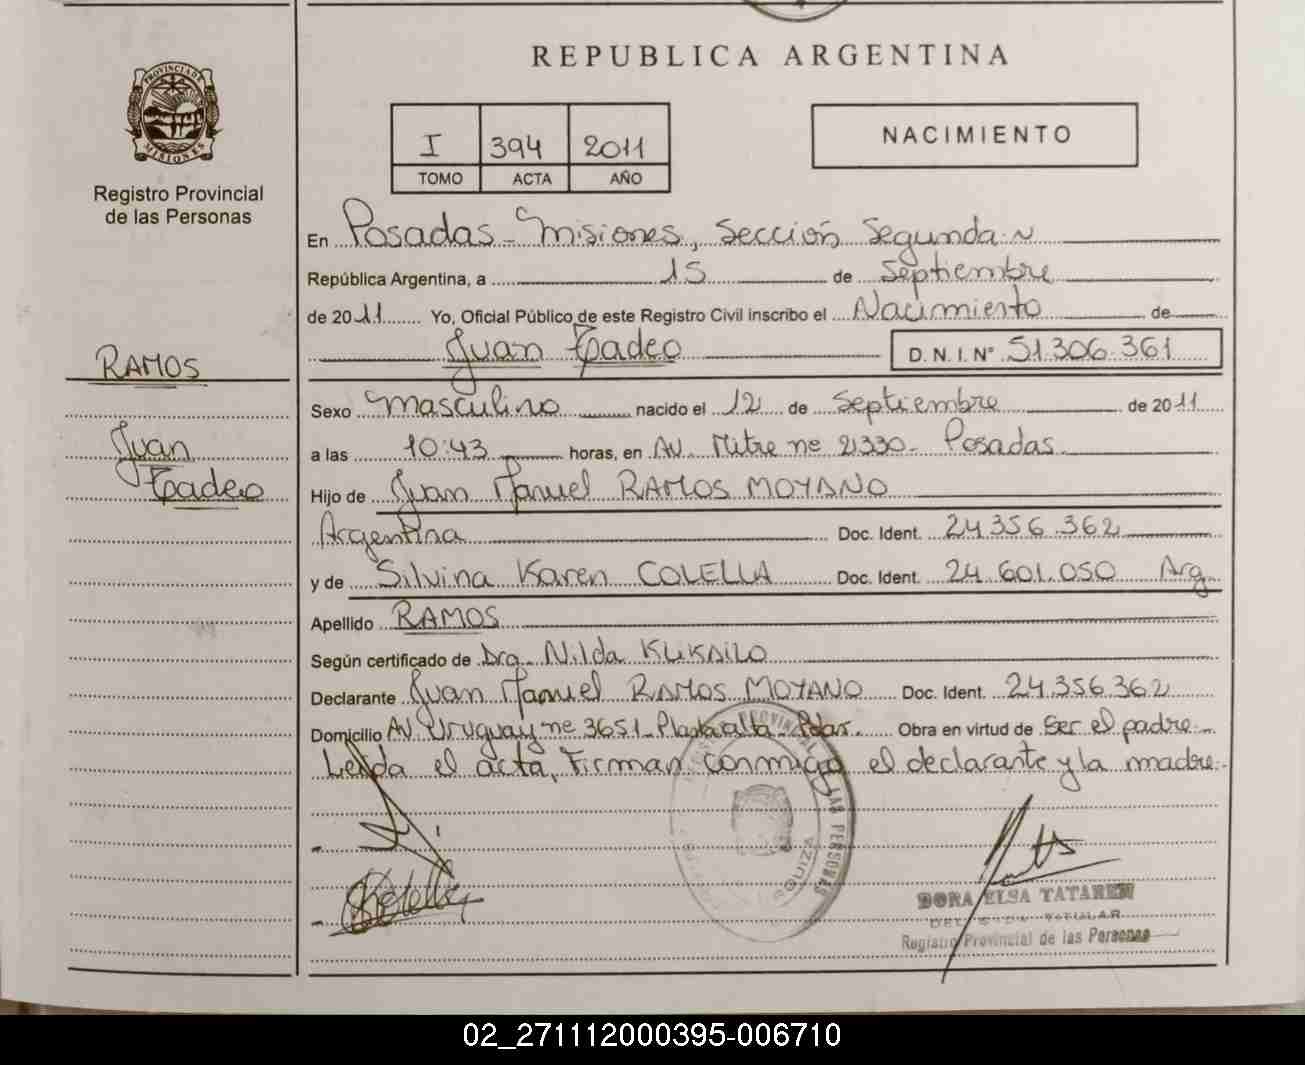 REPUBLICA ARGENTINA
PROVINCIA DE
MISIONES
Registro Provincial
de las Personas
I 394 2011
TOMO ACTA AÑO
NACIMIENTO
En Posadas - Misiones, Sección Segunda
República Argentina, a 15 de Septiembre
de 2011 Yo, Oficial Público de este Registro Civil inscribo el Nacimiento de
Juan Tadeo D.N.I. N° 51.306.361
RAMOS
Juan
Tadeo
Sexo Masculino nacido el 12 de Septiembre de 2011
a las 10:43 horas, en AV. Mitre nº 2330 - Posadas
Hijo de Juan Manuel RAMOS MOYANO
Argentina Doc. Ident. 24.356.362
y de Silvina Karen COLELLA Doc. Ident. 24.601.050 Arg.
Apellido RAMOS
Según certificado de Nilda
Declarante Juan Manuel RAMOS MOYANO Doc. Ident. 24.356.362
Domicilio AV. Uruguay nº 3651 - Planta alta - Pdas. Obra en virtud de Ser el padre
Leída el acta, Firman conmigo el declarante y la madre.
DORA ELSA TATAREN
TITULAR
Registro Provincial de las Personas
02_271112000395-006710